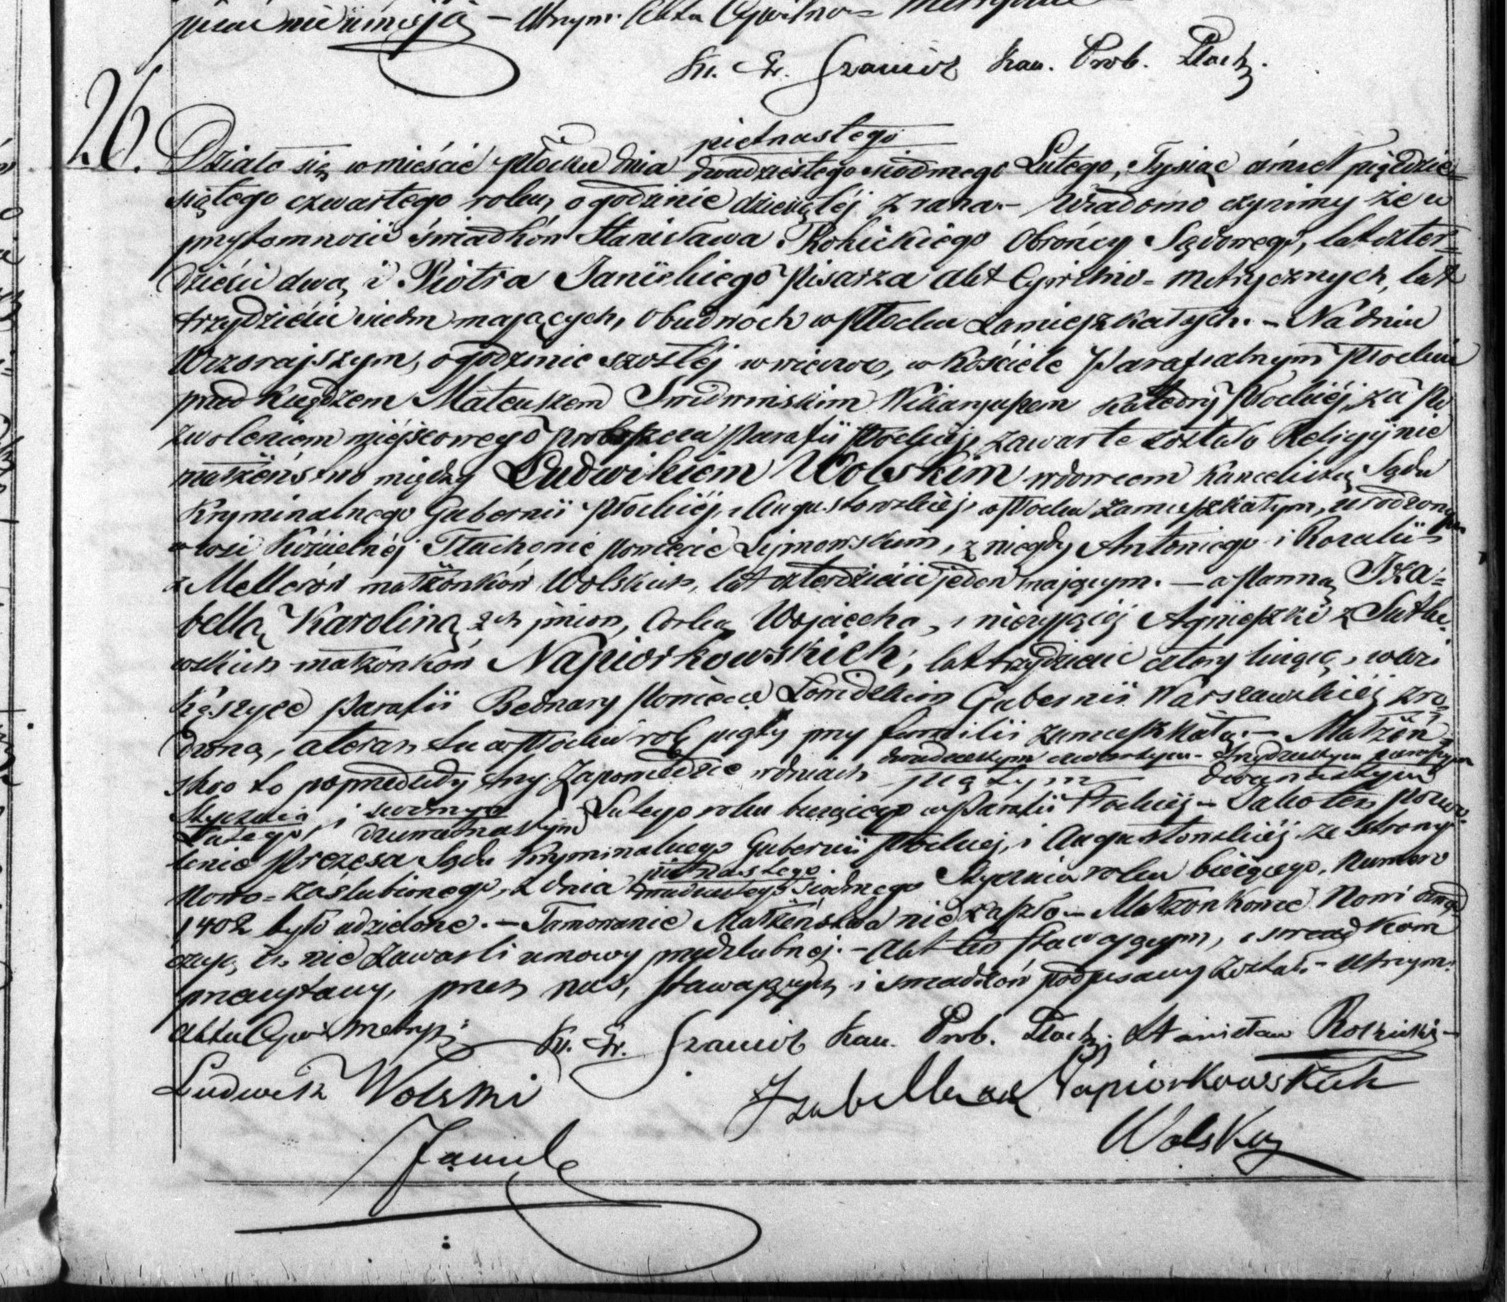 pisać nie umieją – Utrzym: Akta Cywilno=
Ks. Fr. Szamiót Kan. Prob. Płock.
26.
piętnastego
Działo się w mieście Płocku dnia dwudziestego siódmego Lutego, Tysiąc ośmset pięćdzie=
siątego czwartego roku, o godzinie dziewiątej z rana. – Wiadomo czynimy że w
przytomności świadków Stanisława Rokickiego Obrońcy Sądowego, lat czter=
dzieści dwa, i Piotra Jani Pisarza Akt Cywilno = metrycznych, lat
trzydzieści siedm mających, obudwóch w Płocku zamieszkałych. – Na dniu
wczorajszym, o godzinie szóstej wieczór, w kościele Parafialnym Płockim
przed Księdzem Mateuszem Wikariuszem Katedry Płockiej, za po=
zwoleniem miejscowego Proboszcza Parafii Płockiej, zawarte zostało Religijnie
małżeństwo między Ludwikiem Wolskim wdowcem Kancelistą Sądu
Kryminalnego Gubernii Płockiej i Augustowskiej w Płocku zamieszkałym, urodzonym
w wsi Kościelnej Tłuchowie Powiecie Lipnowskim, z niegdy Antoniego i Rozalii
z małżonków Wolskich, lat czterdzieści jeden mającym. – a Panną Iza=
bellą Karoliną 2ch imion, Córką Wojciecha, i nieżyjącej Agnieszki z
małżonków Napiorkowskich, lat trzydzieści cztery liczącą, w wsi
Parafii Bednary Powiecie Łowickim Gubernii Warszawskiej zro=
dzoną, a teraz tu w Płocku przy familii zamieszkałą. – Małżeń=
stwo to poprzedziły trzy zapowiedzie w dniach piątym dwunastym
Stycznia i
Lutego i dziewiętnastym Lutego roku bieżącego w Parafii Płockiej – Jako też pozwo=
lenie Prezesa Sądu Kryminalnego Gubernii Płockiej, i Augustowskiej ze strony
piętnastego
Nowo=zaślubionego, z dnia dwudziestego siódmego Stycznia roku bieżącego, Numero
1402 było udzielone. – Tamowanie Małżeństwa nie zaszło. – Małżonkowie Nowi
że nie zawarli umowy przedślubnej. – Akt ten stawającym, i świadkom
przeczytany, przez nas, stawających i świadków podpisany został. – Utrzym:
Akta Cywi: Metryz:
Ks. Fr. Szamiót Kan. Prob. Płock. Stanisław Rokicki –
Ludwik Wolski
Izabella z Napiorkowskich
Wolska